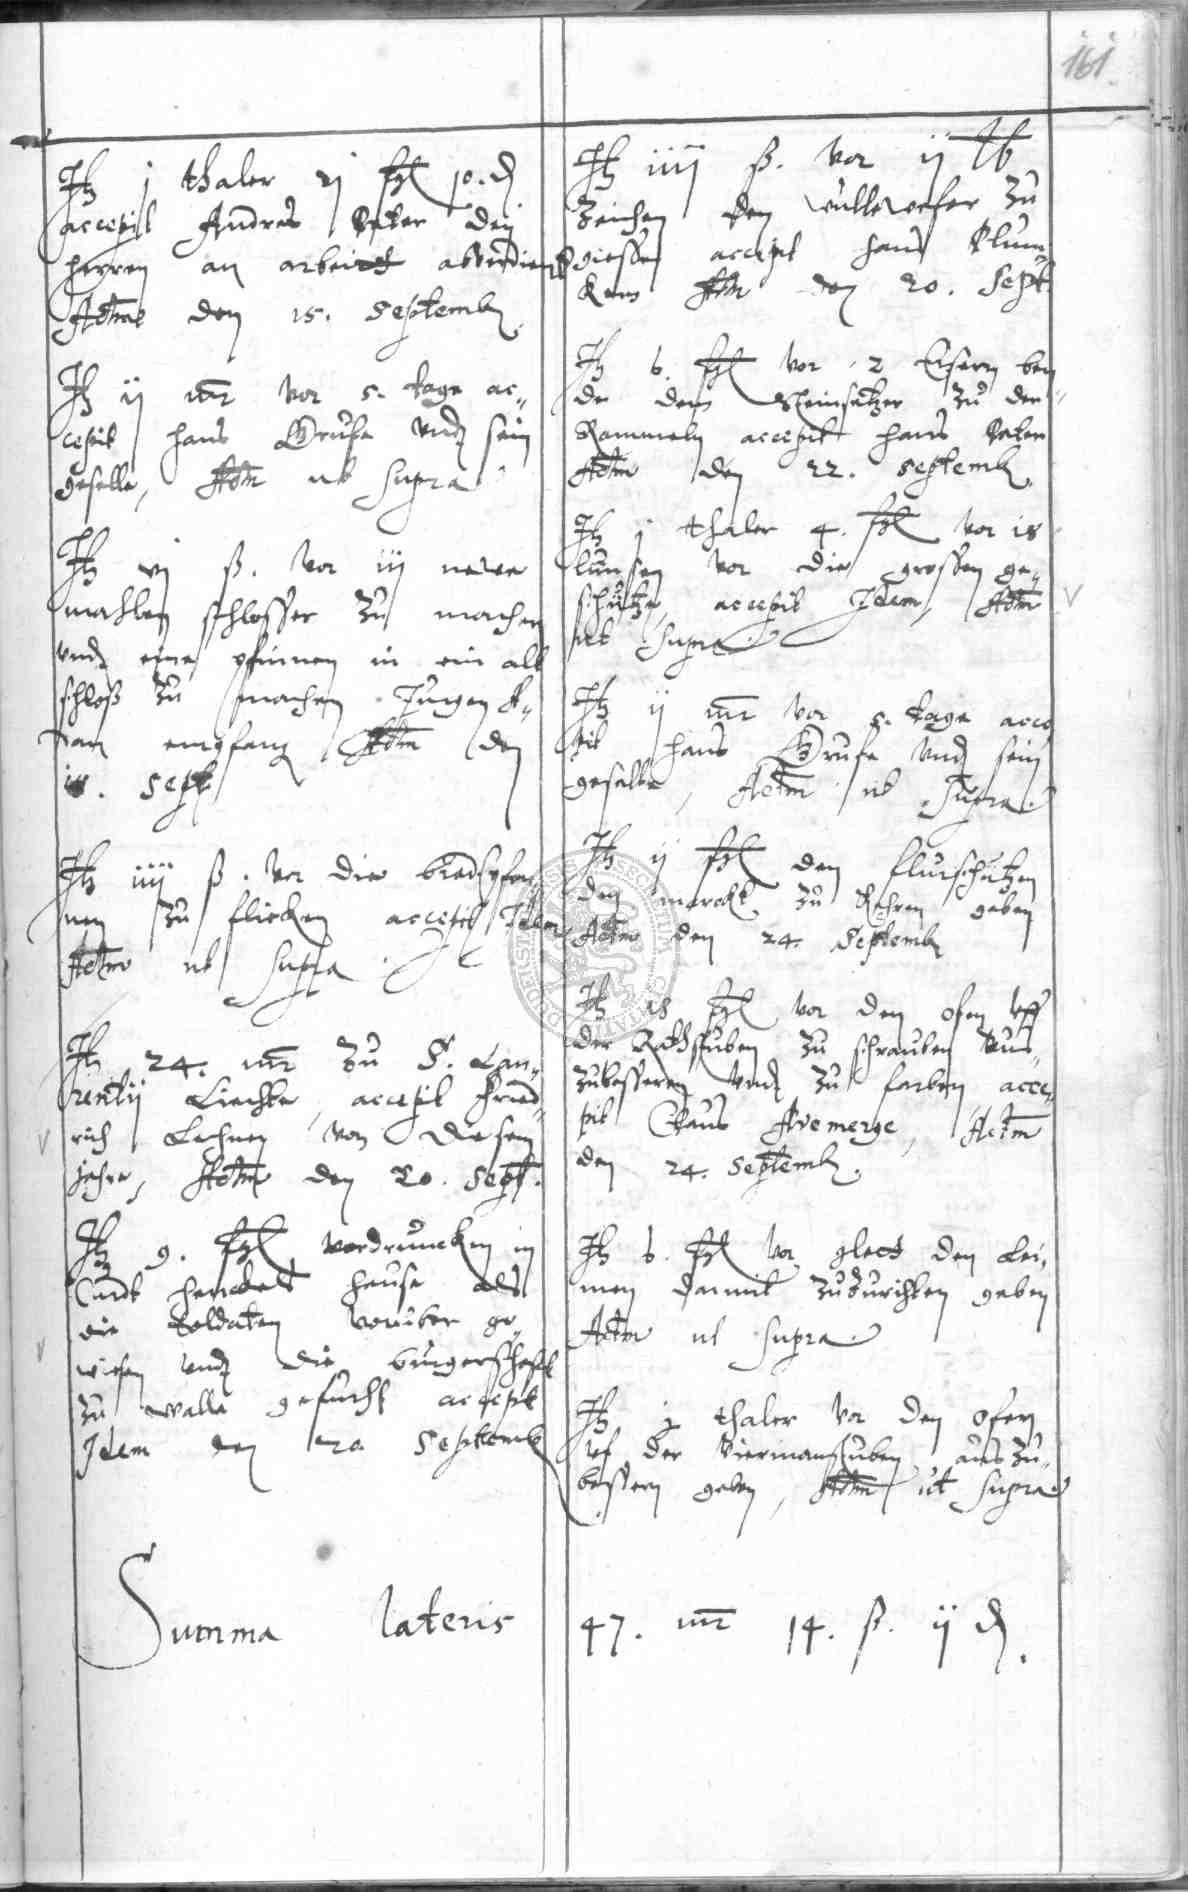 161
Jtz j thaler vj fgl 10. d
accepit Andres Vater den
herren an arbeit abverdient
Actum den 15. Septemb
Jtz ij mr vor 5. tage ac-
cepit hans Grufe vnd sein
geselle, Actm ut supra
Jtz vj ß. vor iij newe
mahlen schlosser zu machen
vnd eine pfinnen in ein alt
schloß zu machen Jurgen
empfang Actm den
18. Sept
Jtz iiij ß. vor die
nen zu flicken accepit Idem
Actm ut supra
Jtz 24. mr zu S. Lau-
rentij Liechte, accepit Fried-
rich Lechner von diesem
jahre, Actm den 20. Sept.
Jtz 9. fgl verdruncken in
Curdt hause als
die Soldaten voruber ge-
wiesen vnd die burgerschafft
zu walle gefurdt accepit
Idem den 20 Septemb
Jtz iiij ß. vor ij lb
Zeichen den wullewefer zu
giessen accepit hans Blum-
Actm den 20. Sept
Jtz 6. fgl vor 2 Eisern ben-
de dem Steinsetzer zu der
Rammeln accepit hans Vater
Actm den 22. Septemb
Jtz j thaler 4. fgl vor 18
lunsen vor die grossen ge-
schutze, accepit Idem, Actm
ut supra
Jtz ij mr vor 5. tage acce
pit hans Grufe vnd sein
geselle, Actm ut supra
Jtz ij fgl den flurschutzen
den marckt zu kehren geben
Actm den 24. Septemb
Jtz 18 fgl vor den ofen vff
der Rathstuben zu schrauben aus-
zubessern vnd zu farben acce-
pit Claus Avemerge, Actm
den 24. Septemb.
Jtz 6. fgl vor glect den Lei-
men darmit zuzurichten geben
Actm ut supra
Jtz j thaler vor den ofen
vf der Viermanstuben auszu-
bessern geben, Actm ut supra
Summa lateris 47. mr 14. ß. ij d.